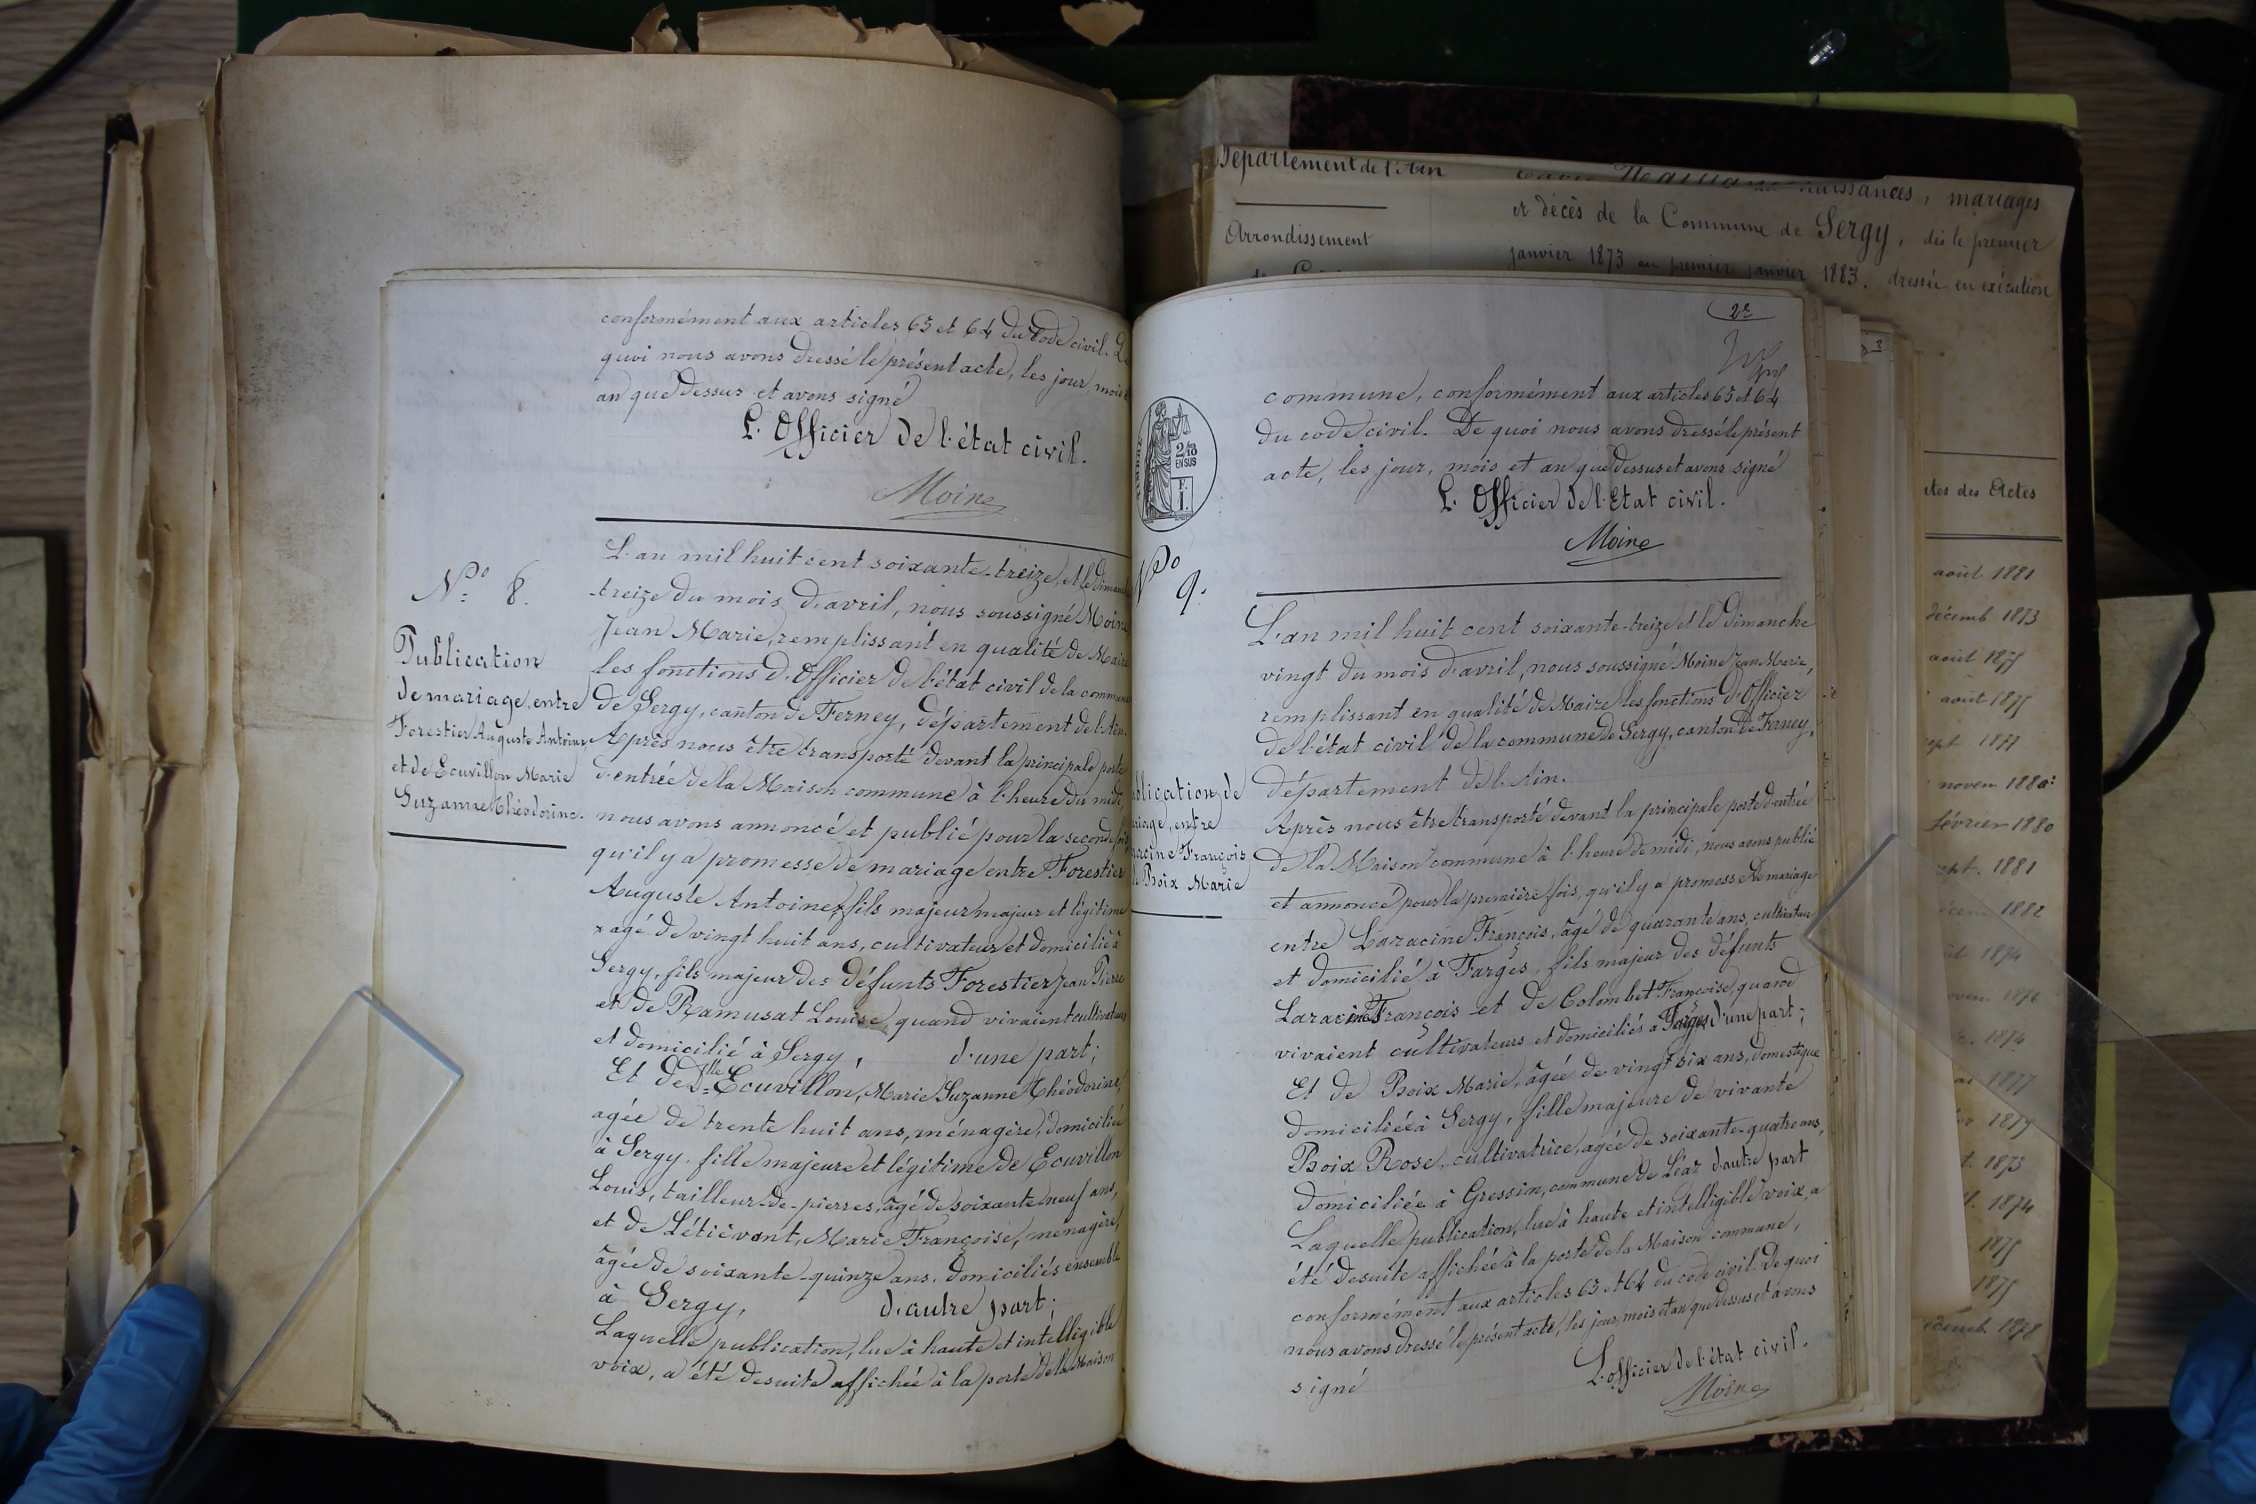 conformément aux articles 63 et 64 du code civil. De
quoi nous avons dressé le présent acte, les jour, mois
an que dessus et avons signé
L. Officier de l'état civil.
Moine
No 8.
Publication
de mariage, entre
Forestier Auguste Antoine
et de Ecuvillon Marie
Suzanne Théodorine.
L'an mil huit cent soixante-treize, et le dimanche
treize du mois d'avril, nous soussigné Moine
Jean Marie, remplissant en qualité de Maire
les fonctions d'Officier de l'état civil de la commune
de Sergy, canton de Ferney, département de l'Ain.
Après nous être transporté devant la principale porte
d'entrée de la Maison commune à l'heure du midi,
nous avons annoncé et publié pour la seconde fois,
qu'il y a promesse de mariage entre Forestier
Auguste Antoine, fils majeur majeur et légitime
agé de vingt huit ans, cultivateur et domicilié à
Sergy, fils majeur des défunts Forestier Jean Pierre
et de Ramusat Louise, quand vivaient cultivateurs
et domicilié à Sergy, d'une part;
Et de Dlle Ecuvillon, Marie Suzanne Théodorine,
agée de trente huit ans, ménagère, domiciliée
à Sergy. fille majeure et légitime de Ecuvillon
Louis, tailleur-de-pierres, âgé de soixante neuf ans,
et de Létiévant, Marie Françoise, ménagère,
âgée de soixante-quinze ans. domiciliés ensemble
à Sergy, d'autre part;
Laquelle publication, lue à haute et intelligible
voix, a été desuite affichée à la porte de la Maison
22
commune, conformément aux articles 63 et 64
du code civil. De quoi nous avons dressé le présent
acte, les jour, mois et an que dessus et avons signé
L. Officier de l'Etat civil.
Moine
TIMBRE
2/10
EN SUS
F.
1.
No
9.
blication, de
riage, entre
racine François
de Boix Marie
L'an mil huit cent soixante-treize et le dimanche
vingt du mois d'avril, nous soussigné Moine Jean Marie,
remplissant en qualité de Maire les fonctions d'Officier
de l'état civil de la commune de Sergy, canton de Ferney,
département de l'Ain.
Après nous être transporté devant la principale porte d'entrée
de la Maison commune à l'heure de midi, nous avons publié
et annoncé pour la première fois, qu'il y a promesse de mariage
entre Laracine François, âgé de quarante ans, cultivateur
et domicilié à Farges, fils majeur des défunts
Laracine François et de Colombet Françoise, quand
vivaient cultivateurs et domiciliés à Farges d'une part;
Et de Boix Marie, âgée de vingt six ans, domestique
domiciliée à Sergy, fille majeure de vivante
Boix Rose, cultivatrice, agée de soixante-quatre ans,
domiciliée à Gressin, commune de Léaz d'autre part
Laquelle publication, lue à haute et intelligible voix, a
été desuite affichée à la porte de la Maison commune,
conformément aux articles 63 et 64 du code civil. De quoi
nous avons dressé le présent acte, les jour, mois et an que dessus et avons
signé
L'officier de l'état civil.
Moine
Département de l'Ain
Arrondissement
naissances, mariages
et décès de la Commune de Sergy, dès le premier
janvier 1873 au premier janvier 1883. dressée en exécution
des Actes
août 1881
décemb 1873
août 1875
août 1875
sept 1877
novem 1880
février 1880
sept. 1881
1882
1874
1876
1874
1877
1879
1873
1874
1875
1875
décemb. 1878